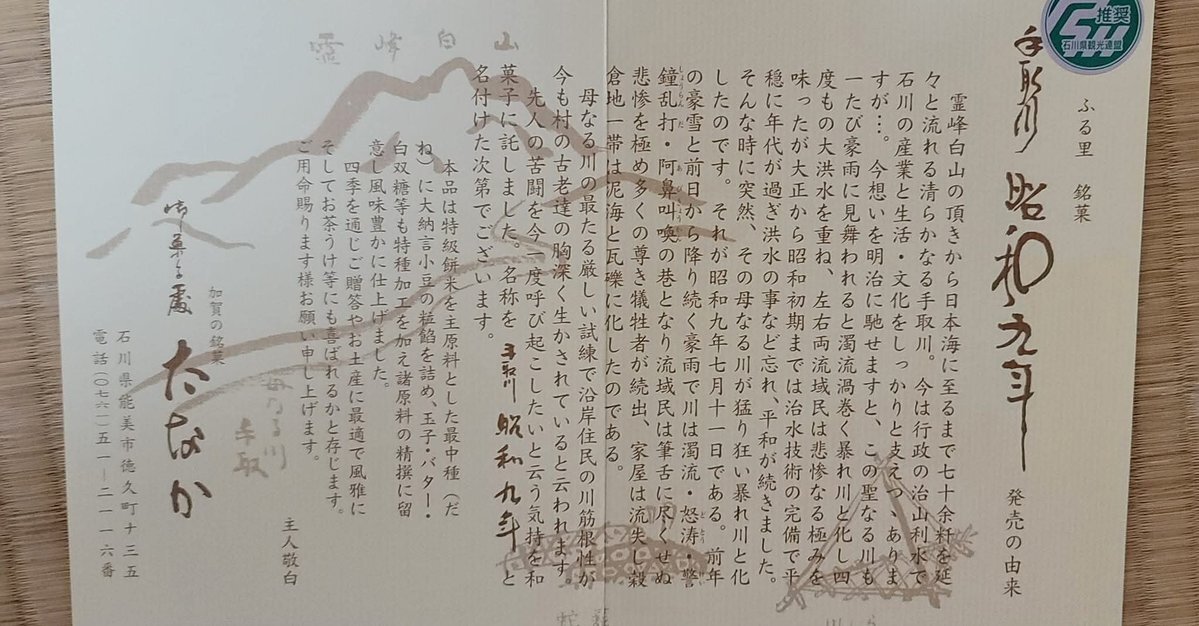 推奨
石川県観光連盟
ふる里 銘菓
手取川 昭和九年
発売の由来
霊峰白山の頂きから日本海に至るまで七十余粁を延
々と流れる清らかなる手取川。今は行政の治山利水で
石川の産業と生活・文化をしっかりと支えつゝありま
すが…。今想いを明治に馳せますと、この聖なる川も
一たび豪雨に見舞われると濁流渦巻く暴れ川と化し四
度もの大洪水を重ね、左右両流域民は悲惨なる極みを
味ったが大正から昭和初期までは治水技術の完備で平
穏に年代が過ぎ洪水の事など忘れ、平和が続きました。
そんな時に突然、その母なる川が猛り狂い暴れ川と化
したのです。それが昭和九年七月十一日である。前年
の豪雪と前日から降り続く豪雨で川は濁流・怒濤・警
鐘乱打・阿鼻叫喚の巷となり流域民は筆舌に尽くせぬ
悲惨を極め多くの尊き犠牲者が続出、家屋は流失し穀
倉地一帯は泥海と瓦礫に化したのである。
母なる川の最たる厳しい試練で沿岸住民の川筋根性が
今も村の古老達の胸深く生かされていると云われます。
先人の苦闘を今一度呼び起こしたいと云う気持を和
菓子に託しました。名称を 手取川 昭和九年 と
名付けた次第でございます。
本品は特級餅米を主原料とした最中種（だ
ね）に大納言小豆の粒餡を詰め、玉子・バター・
白双糖等も特種加工を加え諸原料の精撰に留
意し風味豊かに仕上げました。
四季を通じご贈答やお土産に最適で風雅に
そしてお茶うけ等にも喜ばれるかと存じます。
ご用命賜ります様お願い申し上げます。
主人敬白
加賀の銘菓
御菓子處 たなか
石川県能美市徳久町十三五
電話（〇七六一）五一－二一一六番
霊峰白山
母なる川
手取
蛇籠